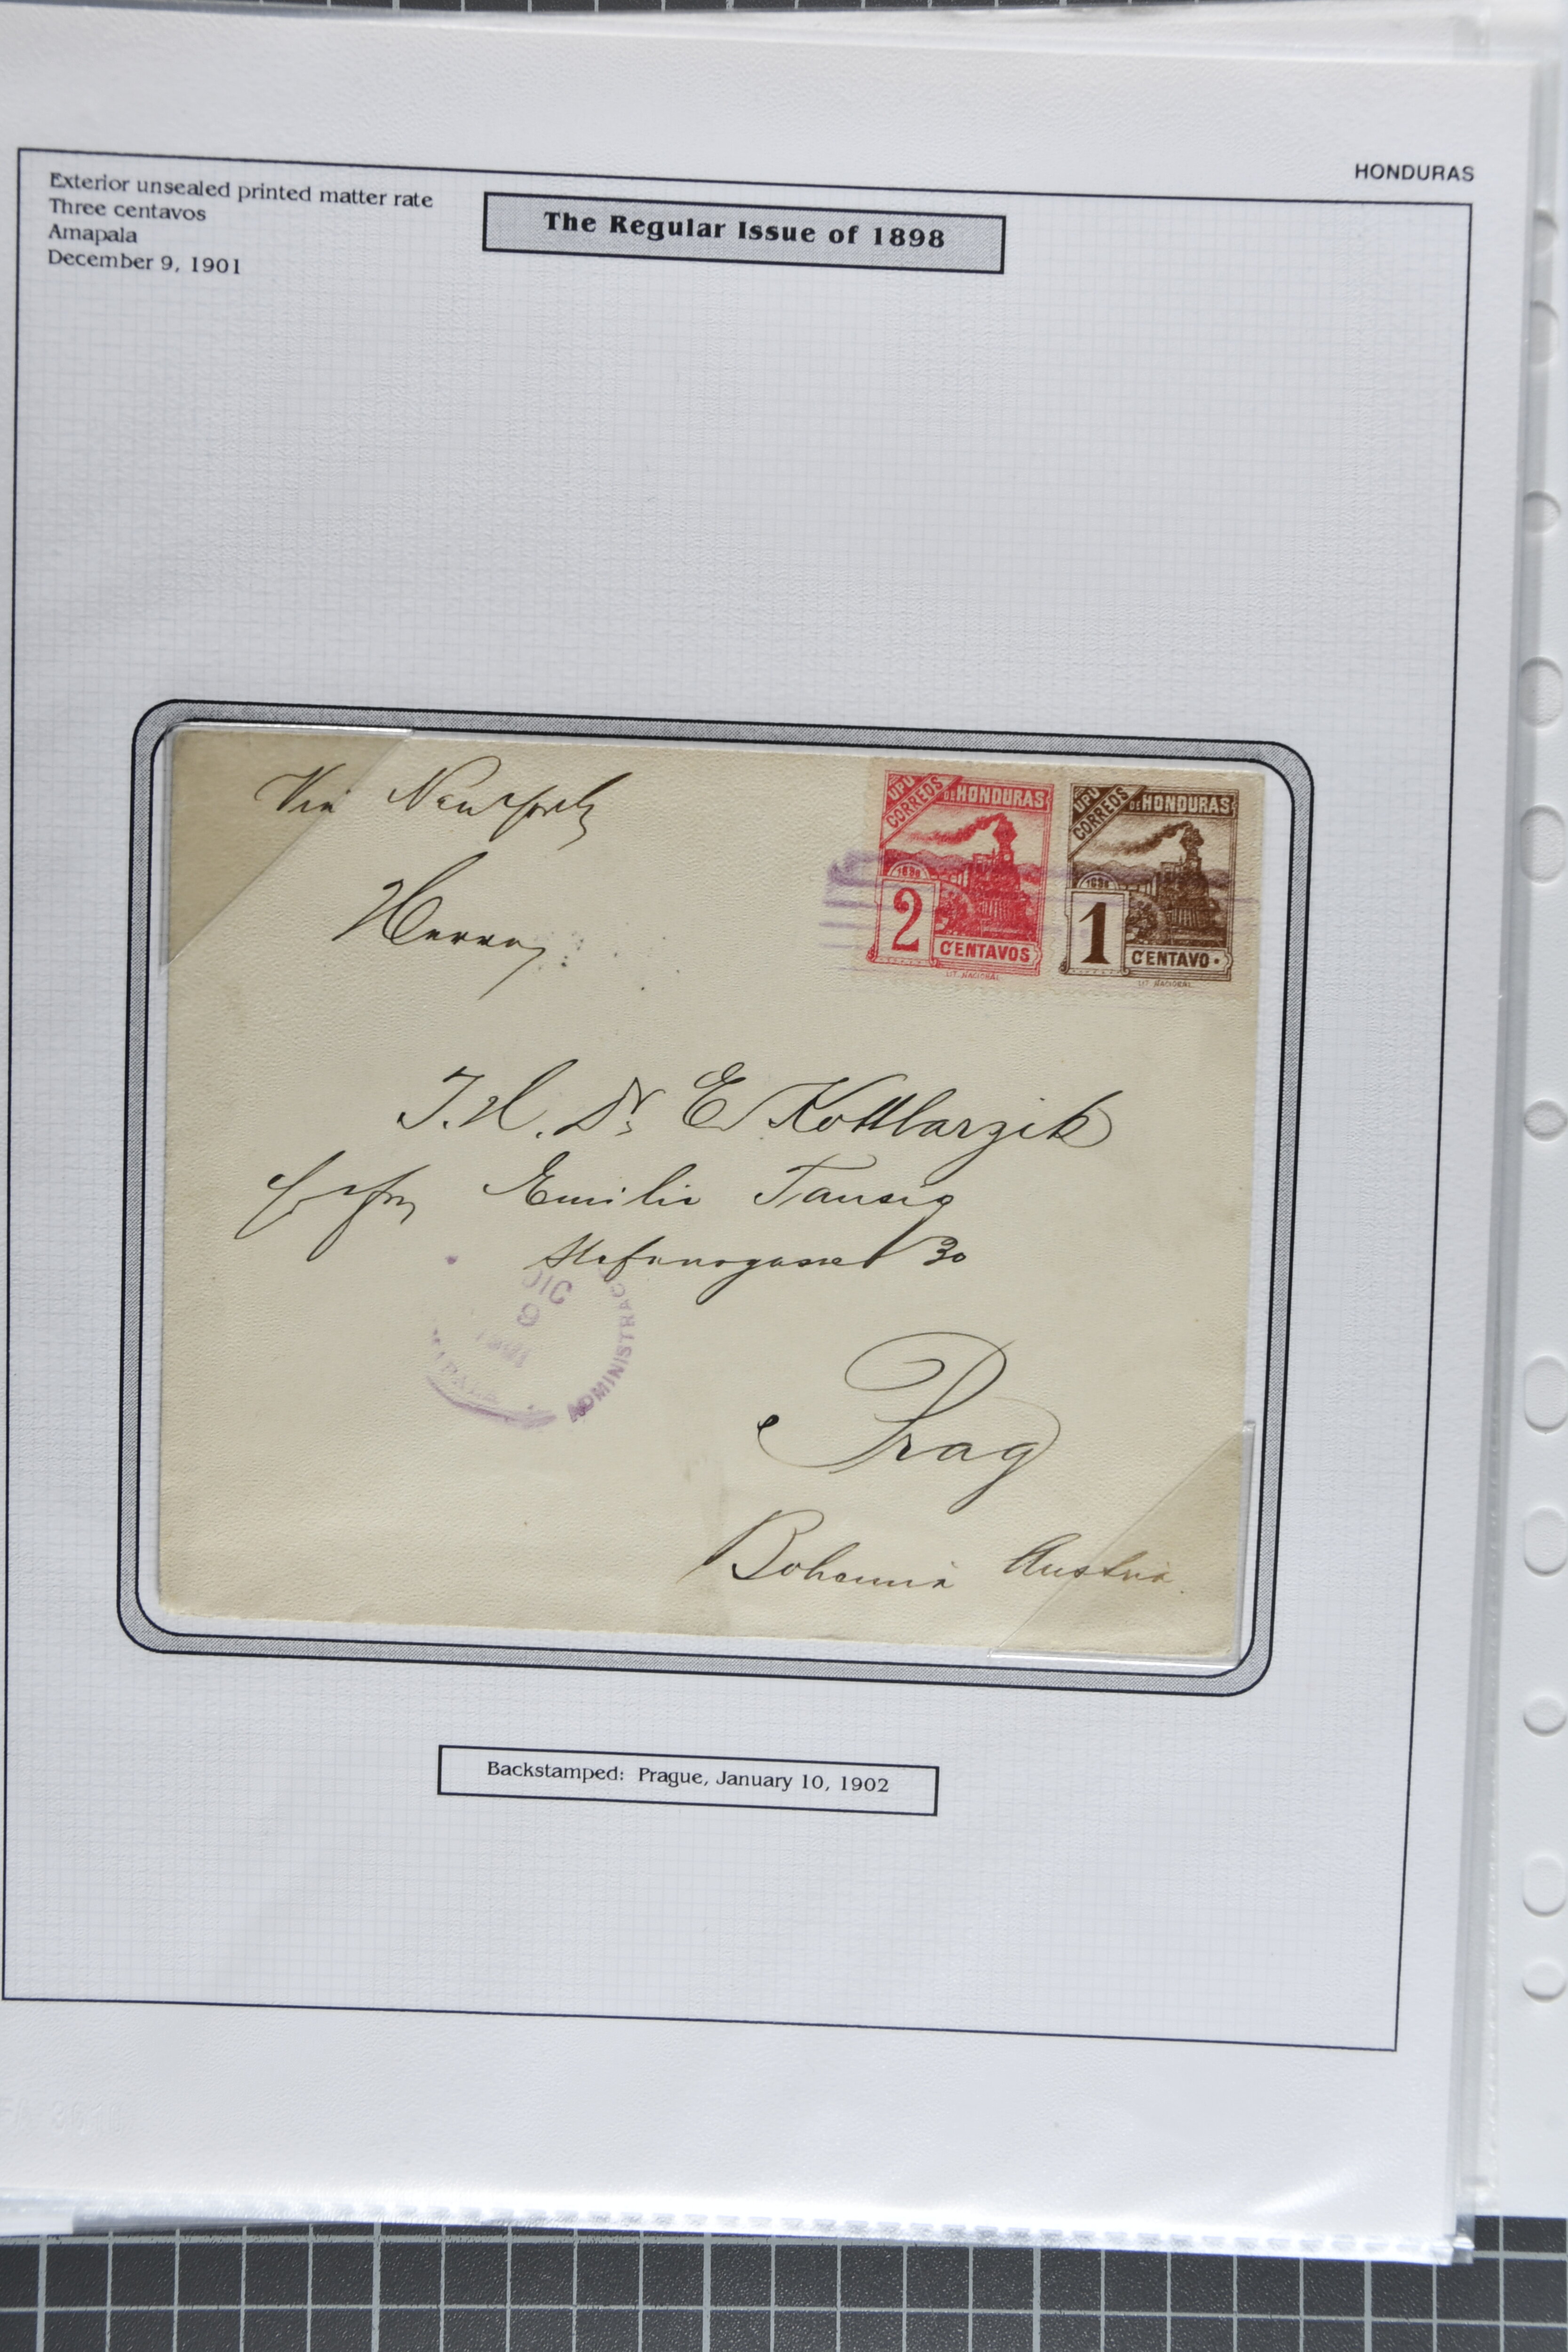 HONDURAS
Exterior unsealed printed matter rate
Three centavos
Amapala
December 9, 1901
The Regular Issue of 1898
Via New York
Herrn
UPU
CORREOS
DE HONDURAS
1898
2
CENTAVOS
LIT. NACIONAL
UPU
CORREOS
DE HONDURAS
1898
1
CENTAVO
LIT. NACIONAL
J. U. Dr. E Kottlarzik
Emilie Taussig
Stefansgasse 30
DIC
9
1901
ADMINISTRAC
Prag
Bohemia Austria.
Backstamped: Prague, January 10, 1902